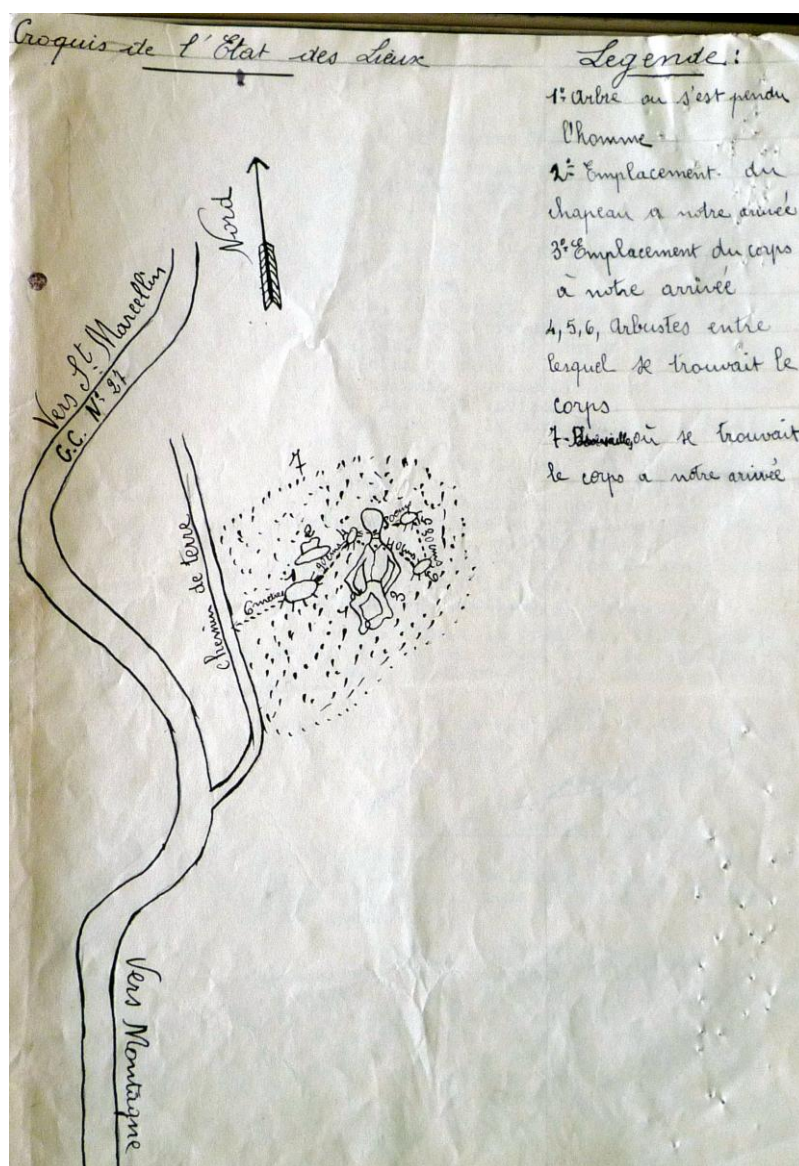 Croquis de l'Etat des Lieux
Legende :
1º Arbre ou s'est pendu
l'homme
2º Emplacement du
chapeau a notre arivée
3º Emplacement du corps
à notre arrivée
4, 5, 6, Arbustes entre
lesquel se trouvait le
corps
7- où se trouvait
le corps a notre arivée
Nord
Vers St Marcellin
G.C. Nº 27
7
chemin de terre
6 metres
2
90 cms
4
50 cms
5
80 cms
6
3
Vers Montagne